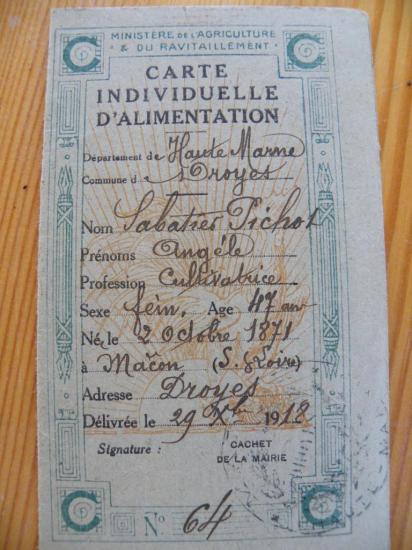 MINISTÈRE DE L'AGRICULTURE
& DU RAVITAILLEMENT
CARTE
INDIVIDUELLE
D'ALIMENTATION
Département de Haute Marne
Commune d Droyes
Nom Sabatier Pichot
Prénoms Angéle
Profession Cultivatrice
Sexe fém. Age 47 ans
Né, le 2 Octobre 1871
à Macon (S. & Loire)
Adresse Droyes
Délivrée le 29 Xbre 1918
Signature : CACHET
DE LA MAIRIE
N° 64